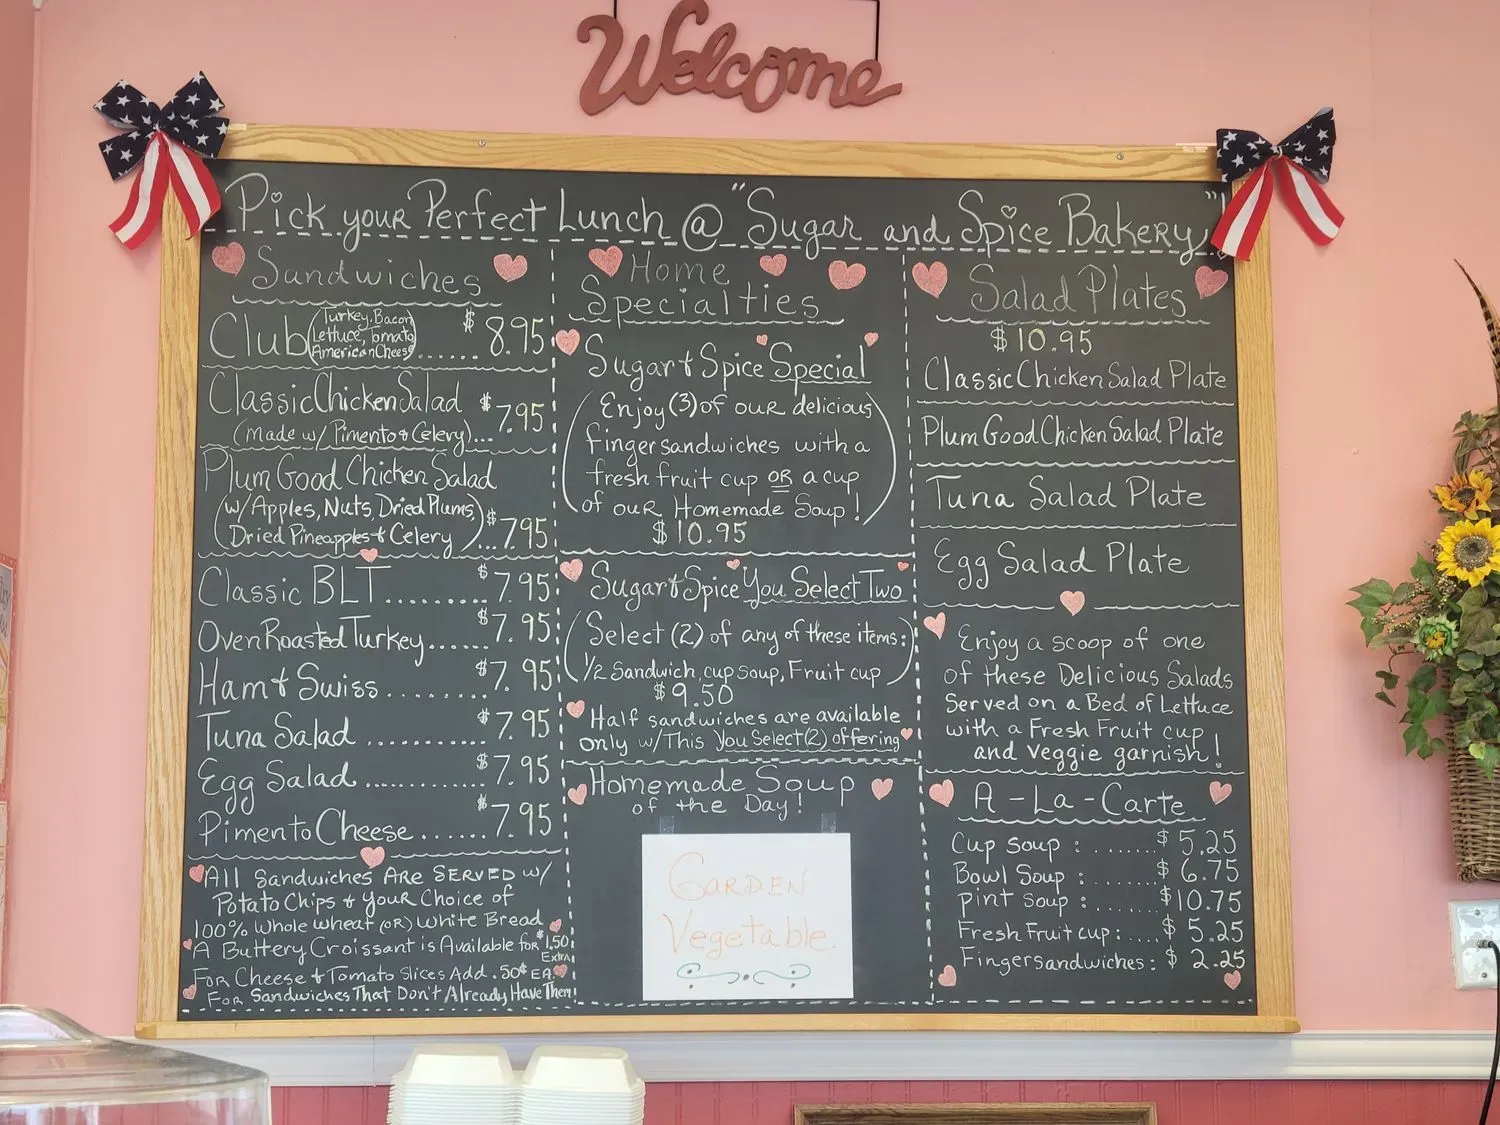 Welcome
Pick your Perfect Lunch @ "Sugar and Spice Bakery"!
Sandwiches
Club (Turkey, Bacon
Lettuce, Tomato
American Cheese)...... $8.95
Classic Chicken Salad $7.95
(Made w/ Pimento & Celery)...
Plum Good Chicken Salad
(w/Apples, Nuts, Dried Plums,
Dried Pineapples & Celery)... $7.95
Classic BLT......... $7.95
Oven Roasted Turkey...... $7.95
Ham & Swiss........ $7.95
Tuna Salad .......... $7.95
Egg Salad............ $7.95
Pimento Cheese....... $7.95
All Sandwiches Are SERVED w/
Potato Chips & your Choice of
100% Whole Wheat (OR) White Bread
A Buttery Croissant is Available for $1.50
Extra
For Cheese & Tomato Slices Add .50¢ EA.
For Sandwiches That Don't Already Have Them
Home
Specialties
Sugar & Spice Special
(Enjoy (3) of our delicious
fingersandwiches with a
fresh fruit cup OR a cup
of our Homemade Soup!)
$10.95
Sugar & Spice You Select Two
(Select (2) of any of these items:
1/2 Sandwich, cup soup, Fruit cup)
$9.50
Half sandwiches are available
only w/This You Select (2) offering
Homemade Soup
of the Day!
Garden
Vegetable
Salad Plates
$10.95
Classic Chicken Salad Plate
Plum Good Chicken Salad Plate
Tuna Salad Plate
Egg Salad Plate
Enjoy a scoop of one
of these Delicious Salads
Served on a Bed of Lettuce
with a Fresh Fruit cup
and veggie garnish!
A-La-Carte
Cup Soup : ....... $5.25
Bowl Soup : ....... $6.75
pint soup : ....... $10.75
Fresh Fruit cup : .... $5.25
Fingersandwiches : $2.25